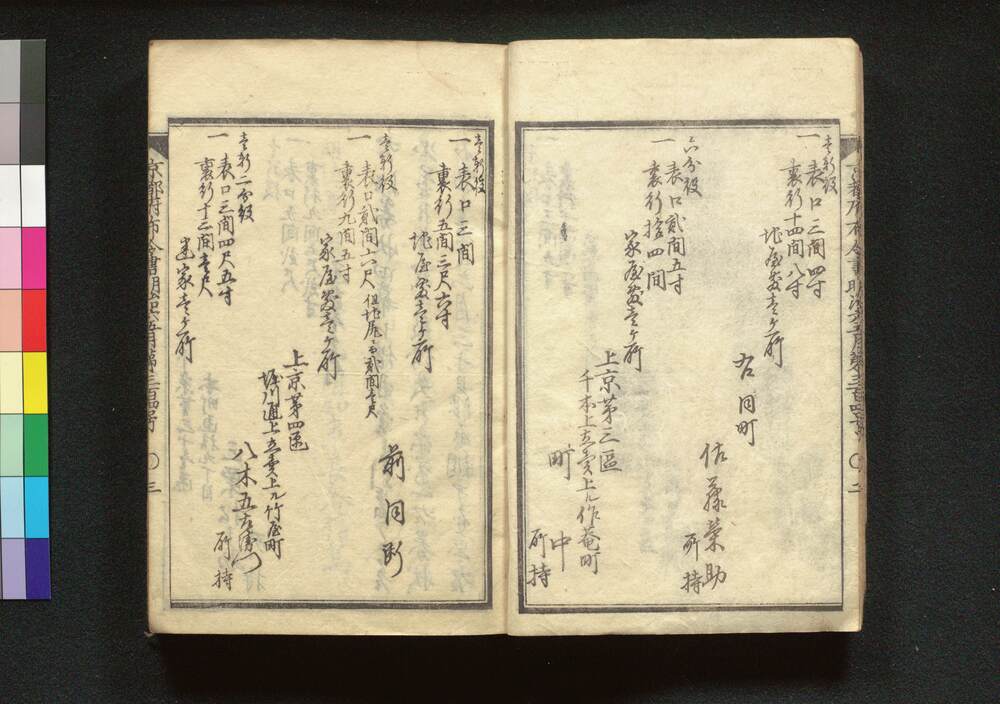 壱軒役
一 表口三間四寸
裏行十四間八寸
地屋敷壱ヶ所
右同町
佐藤栄助
所持
六分役
一 表口貳間五寸
裏行拾四間
家屋敷壱ヶ所
上京第三區
千本上立賣上ル作菴町
町中
所持
壱軒役
一 表口三間
裏行五間三尺六寸
地屋敷壱ヶ所
前同断
壱軒役
一 表口貳間六尺 但地尻ニ而貳間壱尺
裏行九間五寸
家屋敷壱ヶ所
上京第四區
堀川通上立賣上ル竹屋町
八木五右衛門
所持
壱軒二分役
一 表口三間四尺五寸
裏行十三間壱尺
建家壱ヶ所
京都府布令書明治六年五月第三百四号
〇二
〇三